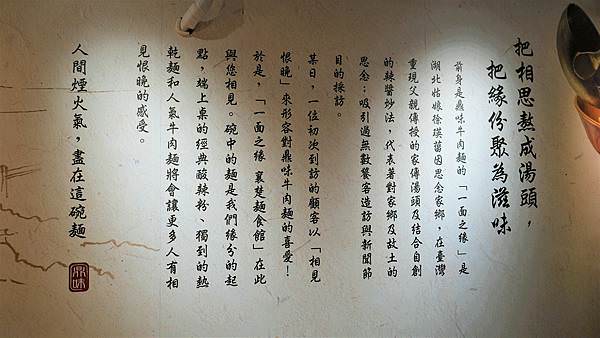 把相思熬成湯頭，
把緣份聚為滋味
前身是鼎味牛肉麵的「一面之緣」是
湖北姑娘徐瑛菌因思念家鄉，在臺灣
重現父親傳授的家傳湯頭及結合自創
的辣醬炒法，代表著對家鄉及故土的
思念；吸引過無數饕客造訪與新聞節
目的採訪。
某日，一位初次到訪的顧客以「相見
恨晚」來形容對鼎味牛肉麵的喜愛！
於是，「一面之緣 襄楚麵食館」在此
與您相見。碗中的麵是我們緣分的起
點，端上桌的經典酸辣粉、獨到的熱
乾麵和人氣牛肉麵將會讓更多人有相
見恨晚的感受。
人間煙火氣，盡在這碗麵
鼎味